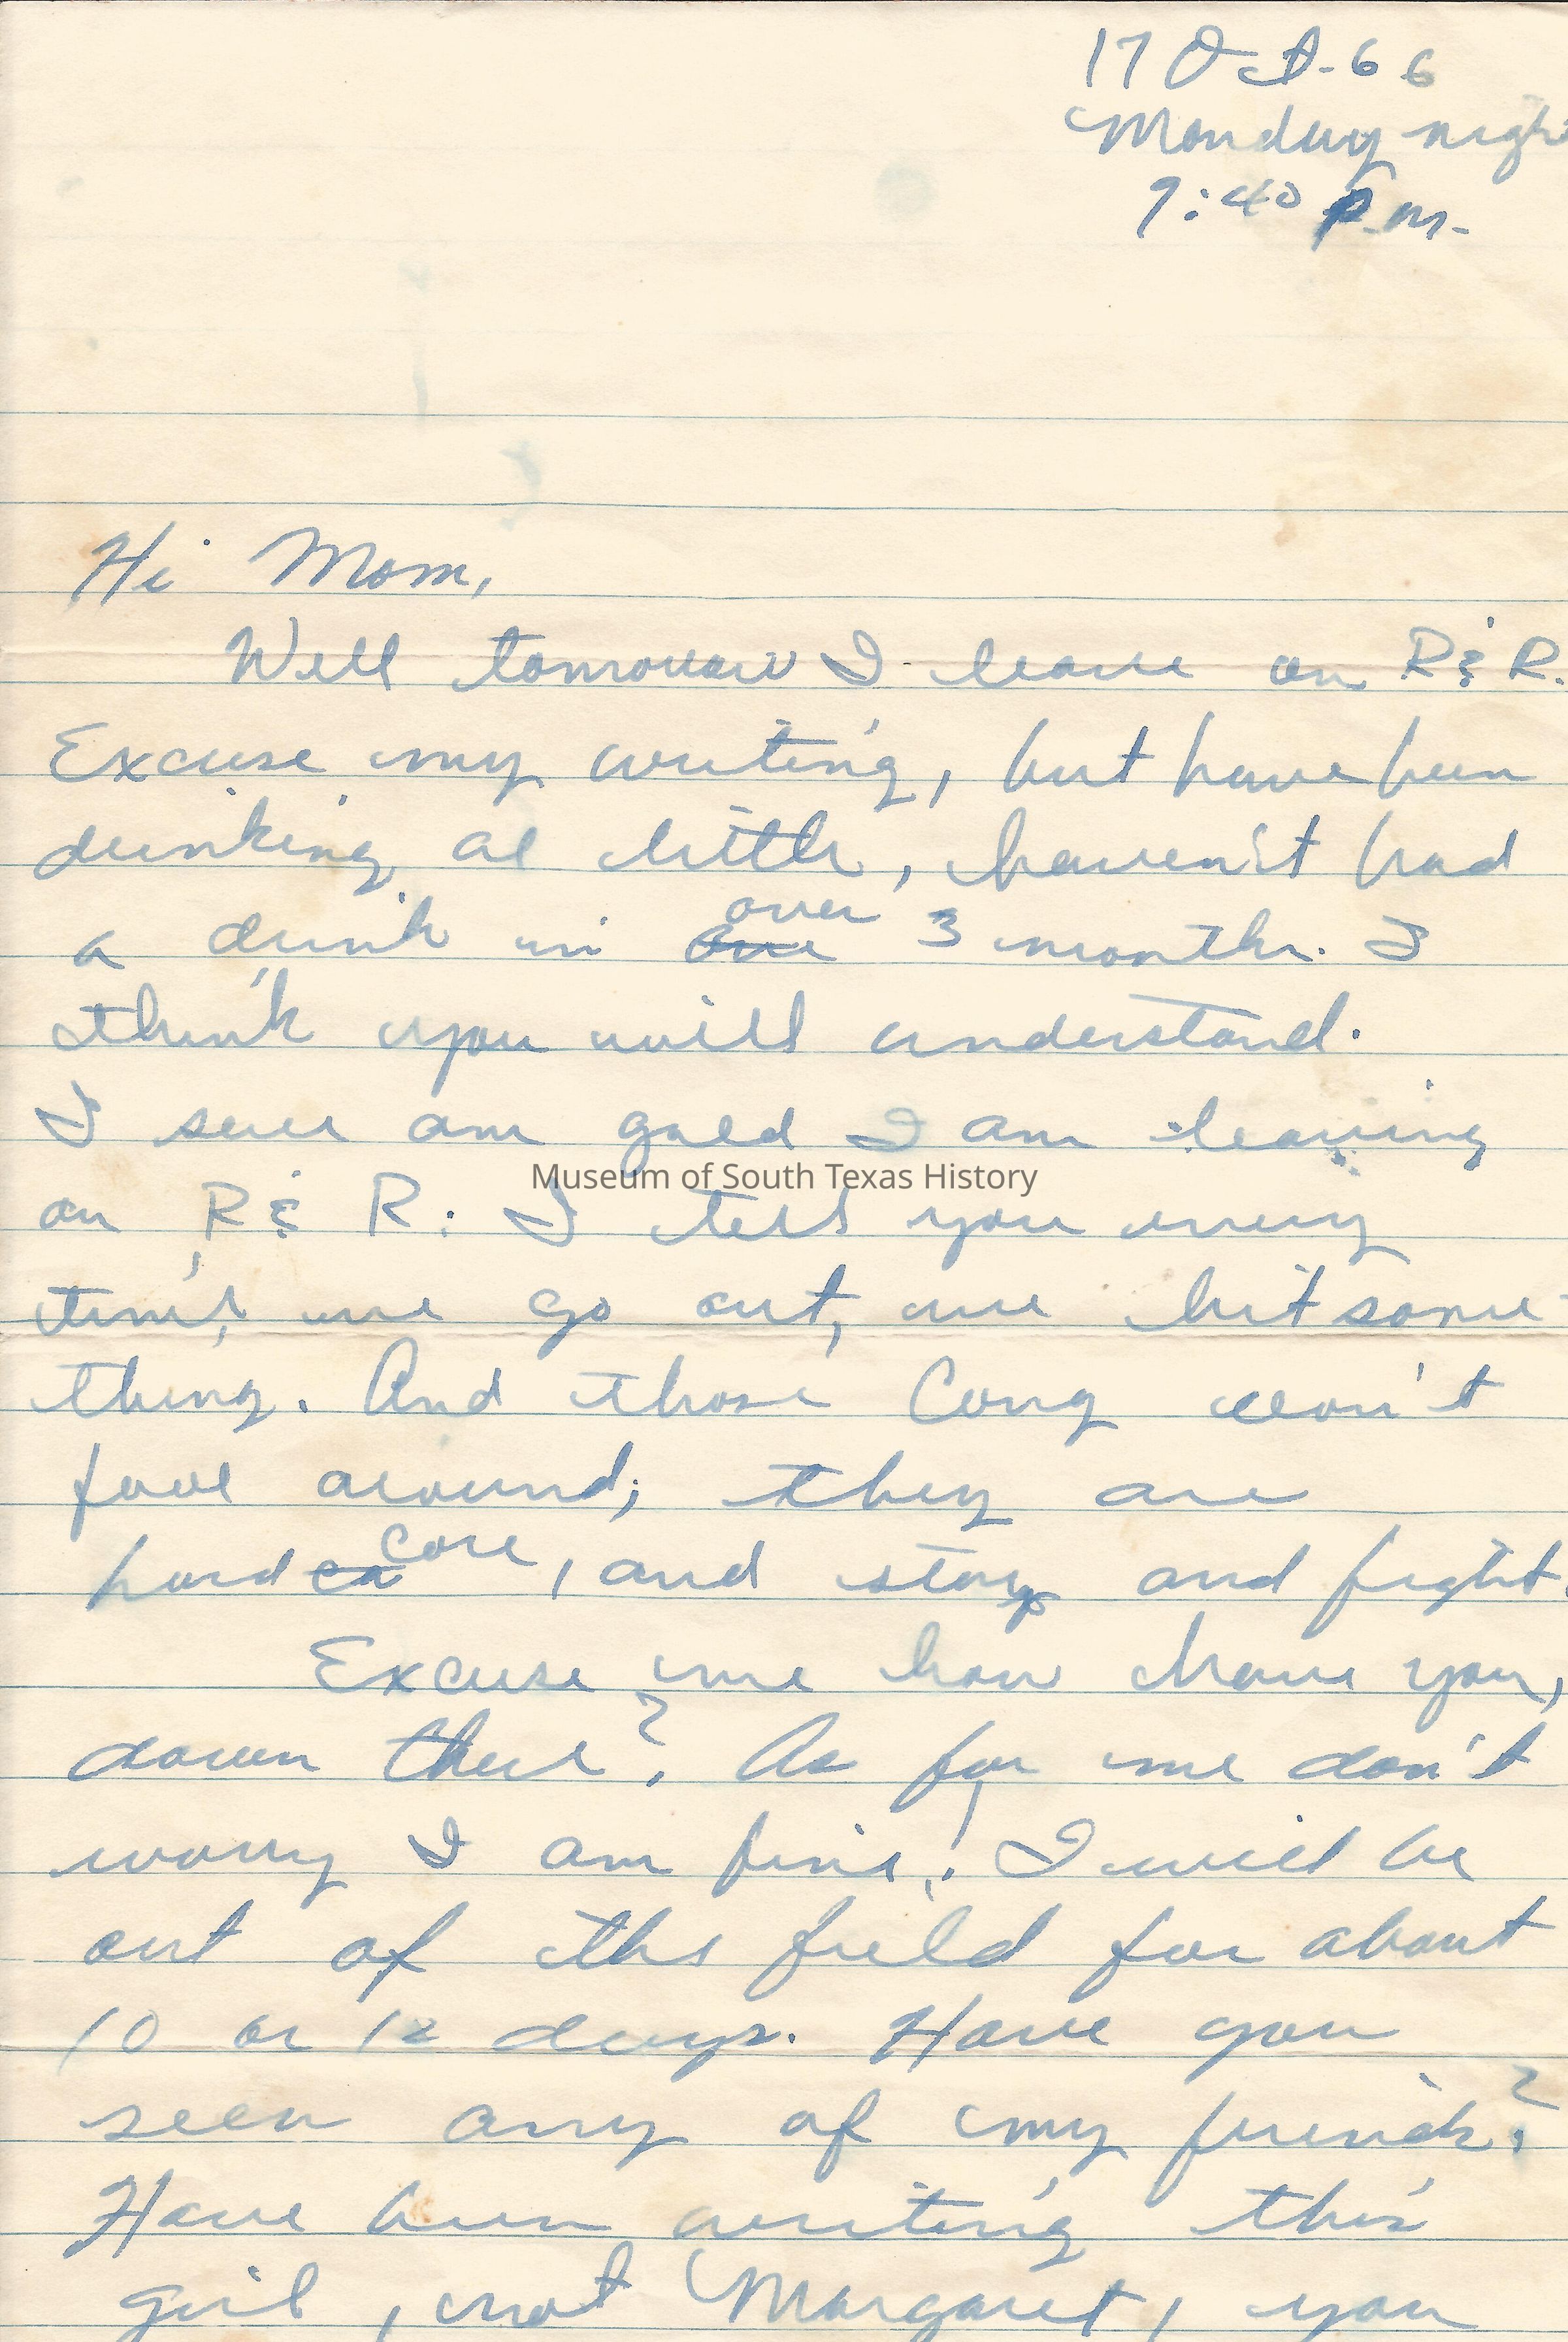 17 Oct-66
Monday nigh
9:40 p.m.
Hi Mom,
Well tomorrow I leave on R & R.
Excuse my writing, but have been
drinking a little, haven't had
over
a drink in one 3 months. I
think you will understand.
I sure am gald I am leaving
Museum of South Texas History
on R & R. I tell you every
time, we go out, we hit some-
thing. And those Cong won't
fool around; they are
core
hard ca , and stay and fight.
Excuse me how have you,
down there? As for me don't
worry I am fine! I will be
out of ths field for about
10 or 12 days. Have you
seen any of my friends?
Have been writing this
girl, not Margaret, you